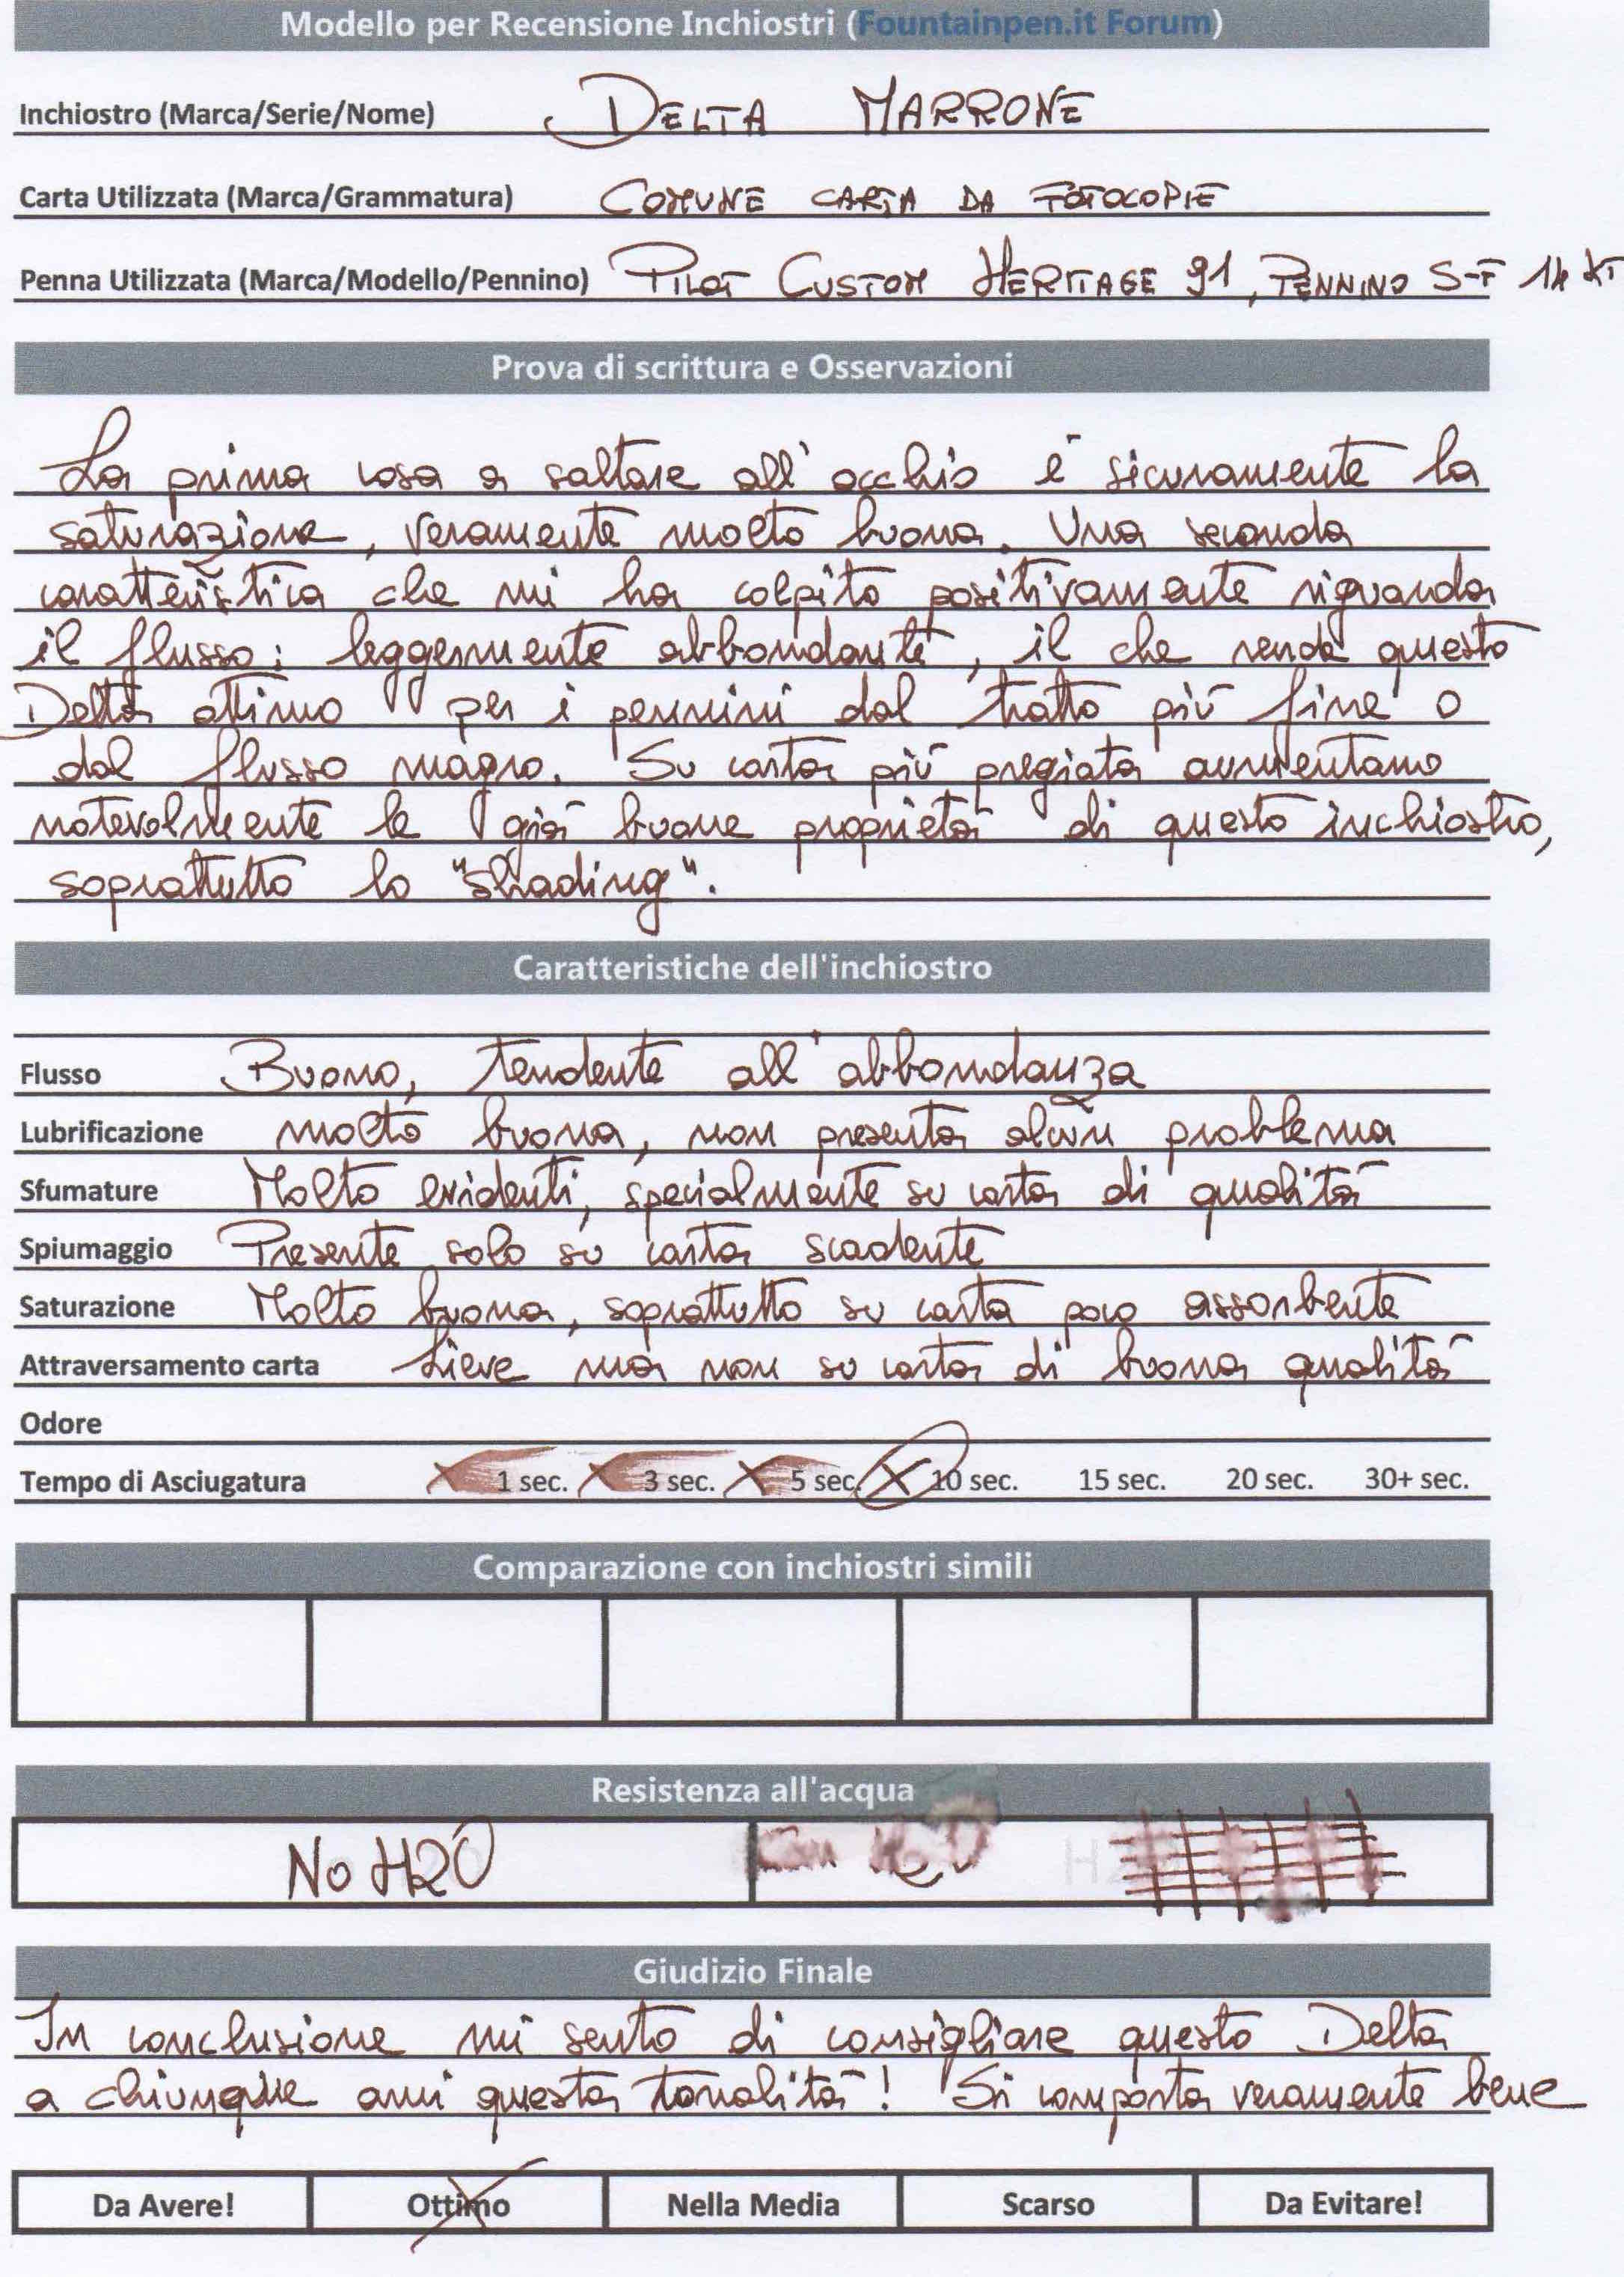 Modello per Recensione Inchiostri (Fountainpen.it Forum)
Inchiostro (Marca/Serie/Nome) DELTA MARRONE
Carta Utilizzata (Marca/Grammatura) COMUNE CARTA DA FOTOCOPIE
Penna Utilizzata (Marca/Modello/Pennino) PILOT CUSTOM HERITAGE 91, PENNINO S-F 14 KT
Prova di scrittura e Osservazioni
La prima cosa a saltare all'occhio è sicuramente la
saturazione, veramente molto buona. Una seconda
caratteristica che mi ha colpito positivamente riguarda
il flusso: leggermente abbondante, il che rende questo
Delta ottimo per i pennini dal tratto più fine o
dal flusso magro. Su carta più pregiata aumentano
notevolmente le già buone proprietà di questo inchiostro,
soprattutto lo "shading".
Caratteristiche dell'inchiostro
Flusso Buono, tendente all'abbondanza
Lubrificazione molto buona, non presenta alcun problema
Sfumature Molto evidenti, specialmente su carta di qualità
Spiumaggio Presente solo su carta scadente
Saturazione Molto buona, soprattutto su carta poco assorbente
Attraversamento carta Lieve ma non su carta di buona qualità
Odore
Tempo di Asciugatura 1 sec. 3 sec. 5 sec. 10 sec. 15 sec. 20 sec. 30+ sec.
Comparazione con inchiostri simili
Resistenza all'acqua
No H2O Con H2O
Giudizio Finale
In conclusione mi sento di consigliare questo Delta
a chiunque ami questa tonalità! Si comporta veramente bene
Da Avere! Ottimo Nella Media Scarso Da Evitare!